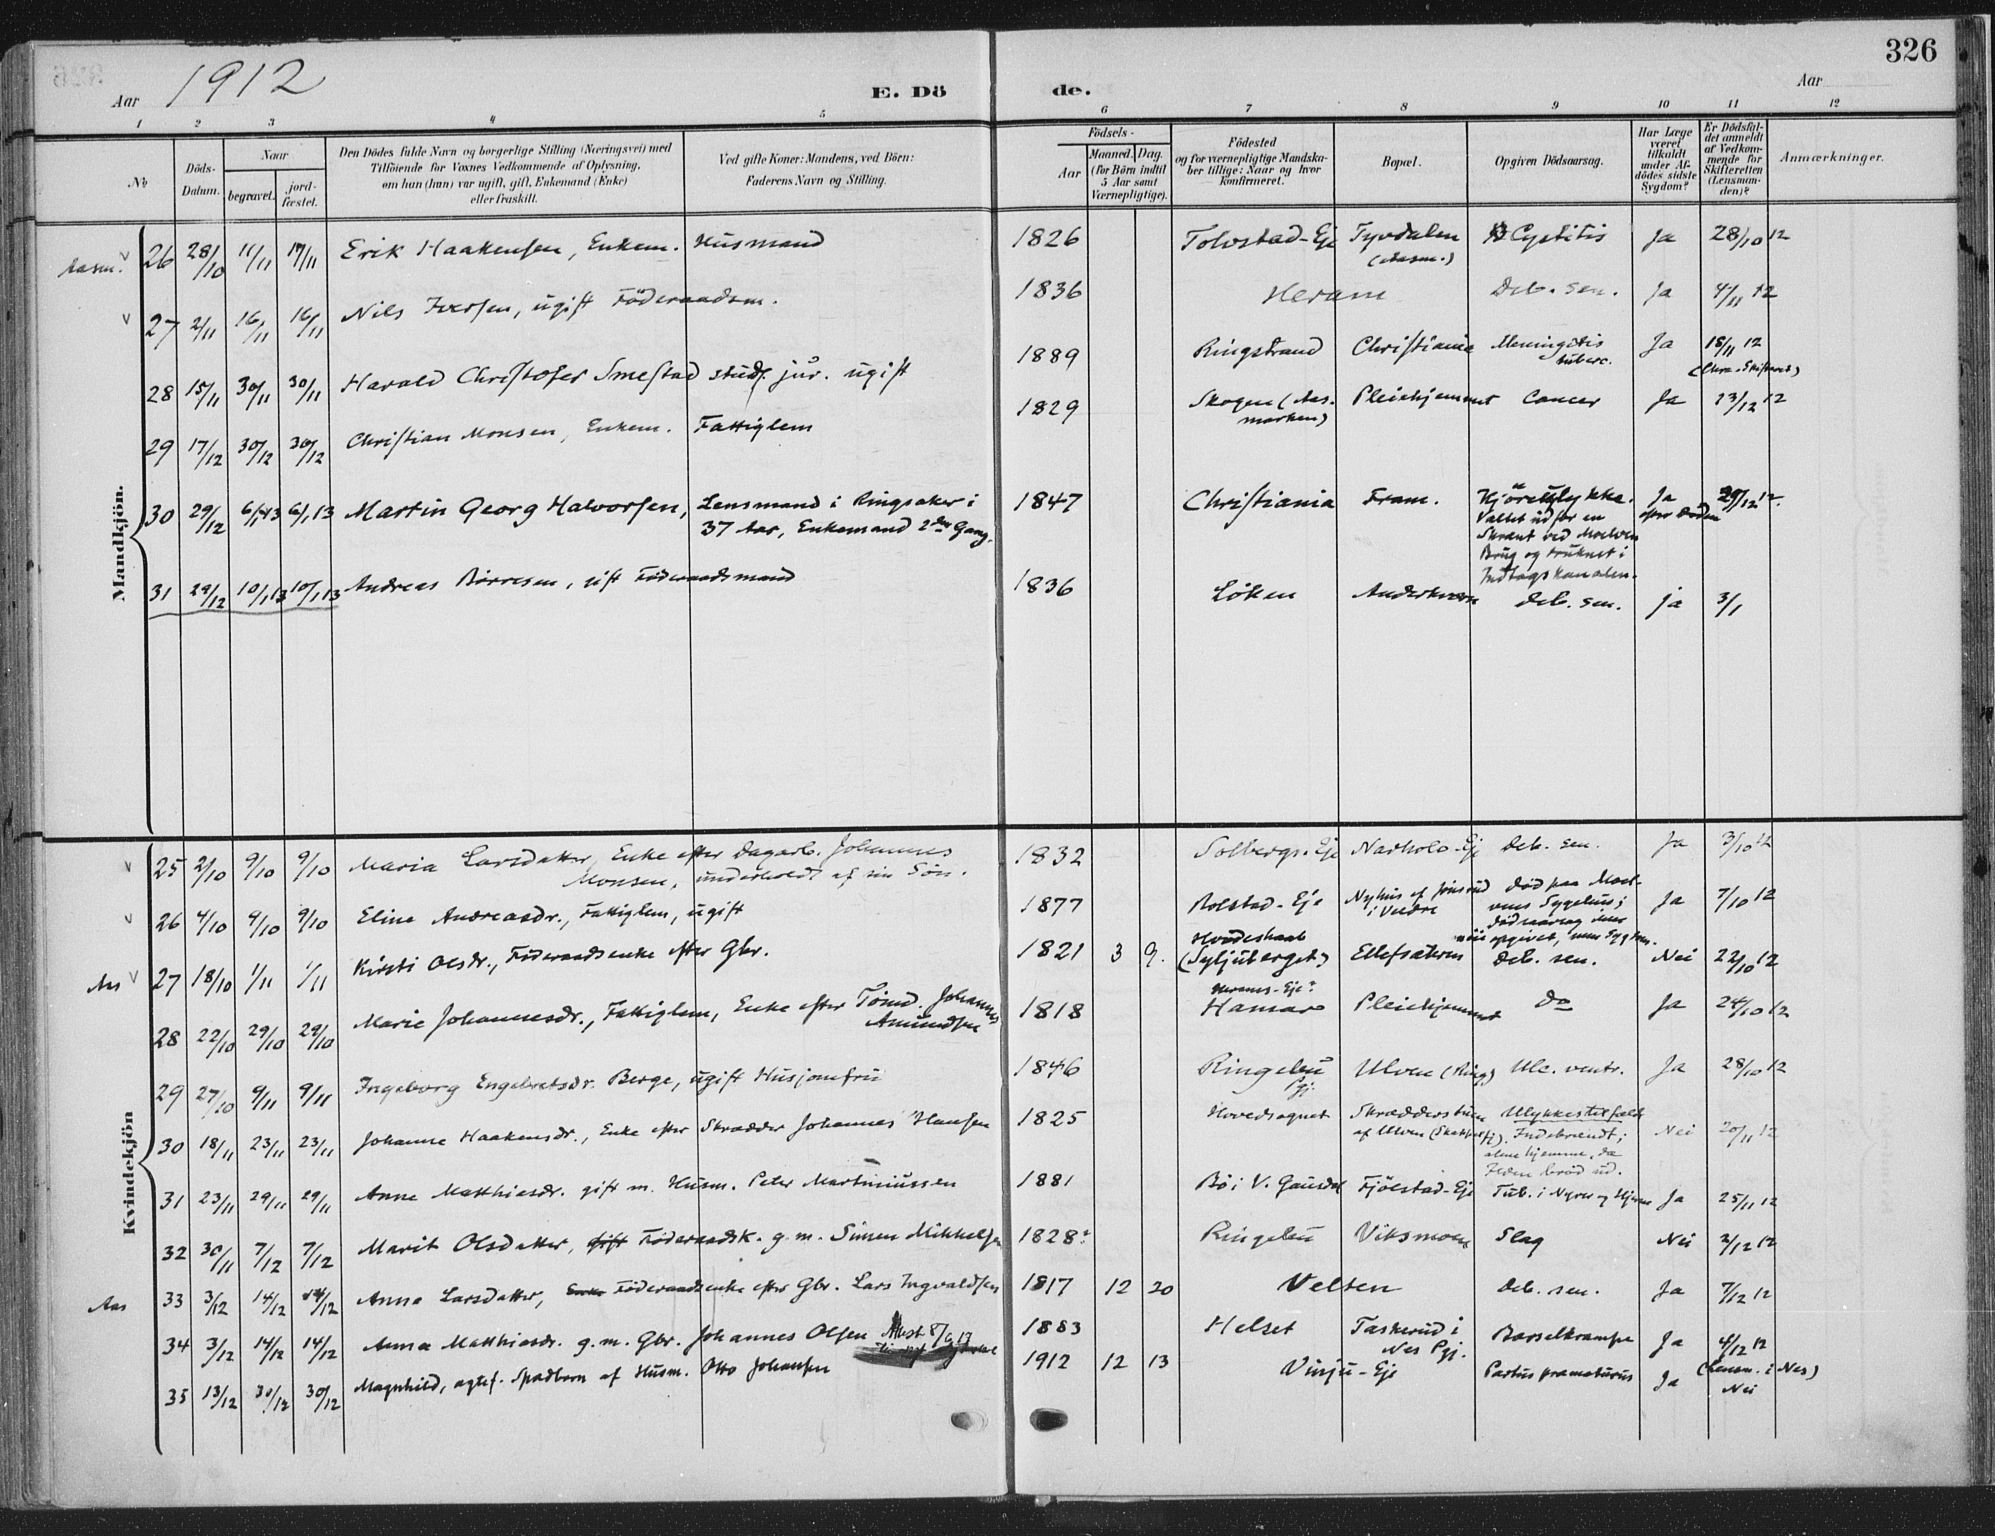 326
Aar 1912
E. Dö de.
Aar
1 2 3 4 5 6 7 8 9 10 11 12
No
Döds-Datum.
Naar
begravet.
jord-fæstet.
Den Dödes fulde Navn og borgerlige Stilling (Næringsvei) med
Tilföiende for Voxnes Vedkommende af Oplysning,
om han (hun) var ugift, gift, Enkemand (Enke)
eller fraskilt.
Ved gifte Koner: Mandens, ved Börn:
Faderens Navn og Stilling.
Födsels-
Aar
Maaned. Dag.
(for Börn indtil
5 Aar samt
Værnepligtige).
Födested
og for værnepligtige Mandska-
ber tillige: Naar og hvor
konfirmeret.
Bopæl.
Opgiven Dödsaarsag.
Har Læge
været
tilkaldt
under Af-
dödes sidste
Sygdom?
Er Dödsfal-
det anmeldt
af Vedkom-
mende for
Skifteretten
(Lensman-
den)?
Anmærkninger.
Mandkjön.
Aasm. 26 28/10 11/11 17/11 Erik Haakensen, Enkem. Husmand 1826 Tolvstad-Eje Tyvdalen (Aasm.) Cystitis Ja 28/10 12
27 2/11 16/11 16/11 Nils Iversen, ugift Föderaadsm. 1836 Heram Deb. sen. Ja 4/11 12
28 15/11 30/11 30/11 Harald Christofer Smestad stud. jur. ugift 1889 Ringstrand Christiania Meningitis tuberc. Ja 18/11 12
(Chra. Skifteret)
29 17/12 30/12 30/12 Christian Monsen, Enkem. Fattiglem 1829 Skogen (Aas-
marken) Pleiehjemmet Cancer Ja 23/12 12
30 29/12 6/1 13 6/1 13 Martin Georg Halvorsen, Lensmand i Ringsaker i
37 Aar, Enkemand 2den Gang. 1847 Christiania Fram. Kjöreulykke.
Væltet udfor en
Skrænt ved Moelven
Brug og druknet i
Indtagskanalen. Ja
efter Döden 29/12 12.
31 29/12 10/1 13 10/1 13 Andreas Börresen, gift Föderaadsmand 1836 Löken Deb. sen. ja 3/1
Kvindekjön
25 2/10 9/10 9/10 Maria Larsdatter, Enke efter Dagarb. Johannes
Monsen, underholdt af sin Sön. 1832 Solbergs-Eje Deb. sen. Ja 3/10 12
26 4/10 9/10 9/10 Eline Andreasdr., Fattiglem, ugift 1877 Bolstad-Eje Nyhus af
i Veldre Död paa
Ja 7/10 12
Aas 27 18/10 1/11 1/11 Kirsti Olsdr., Föderaadsenke efter Gbr. 1821 3 9. (Syljuberget) Ellefsæteren Deb. sen. Nei 22/10 12
28 22/10 29/10 29/10 Marie Johannesdr., Fattiglem, Enke efter Tömd. Johannes
Amundsen 1818 Hamar Pleiehjemmet do Ja 24/10 12
29 27/10 9/11 9/11 Ingeborg Engebretsdr. Berge, ugift Husjomfru 1846 Ringebu
Pgj. Ulven (Ring) Ulc. ventr. Ja 28/10 12
30 18/11 23/11 23/11 Johanne Haakensdr., Enke efter Skrædder Johannes Hansen 1825 Hovedsognet Skrædderstuen
af Ulven Ulykkestilfælde
Indebrændt;
alene hjemme, da
Ilden bröd ud. Nei 20/11 12
31 23/11 29/11 29/11 Anne Matthiasdr. gift m. Husm. Peter Martiniussen 1881 Bö i V. Gausdal Fjölstad-Eje Tub. i Nyrer og Ja 25/11 12
32 30/11 7/12 7/12 Marit Olsdatter, gift Föderaadsk. g. m. Simen Mikkelsen 1828? Ringebu Viksmoen Slag Nei 2/12 12
Aas 33 3/12 14/12 14/12 Anne Larsdatter, Enke Föderaadsenke efter Gbr. Lars Ingvaldsen 1817 12 20 Velten Deb. sen. Ja 7/12 12
34 3/12 14/12 14/12 Anna Matthiasdr. g. m. Gbr. Johannes Olsen Attest 8/9 17 1883 Helset Taskerud i
Nes Pgj. Barselkrampe Ja 4/12 12
(Lensm. i Nes)
35 13/12 30/12 30/12 Magnhild, ægtef. Spædbarn af Husm. Otto Johansen 1912 12 13 Vinju-Eje Partus præmaturus Ja Nei